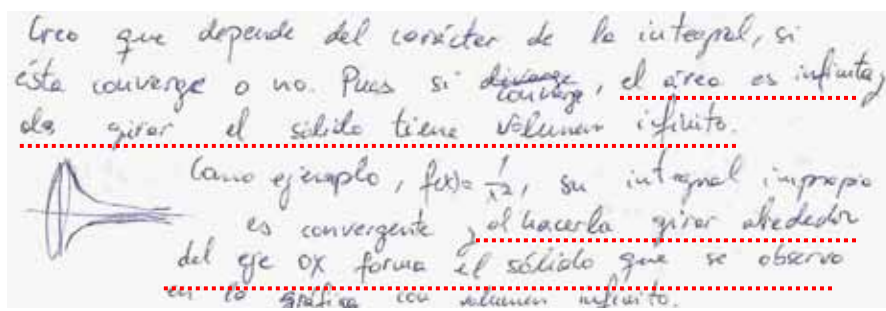 Creo que depende del carácter de la integral, si
ésta converge o no. Pues si diverge converge, el área es infinita y
al girar el sólido tiene volumen infinito.
Como ejemplo, f(x)= 1/x2, su integral impropia
es convergente y al hacerla girar alrededor
del eje OX forma el sólido que se observa
en la gráfica con volumen infinito.